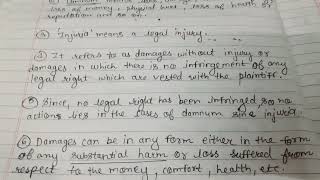 loss of money, physical hurt, loss of health,
reputation and so on.
③ 'Injuria' means a legal injury...
④ It refers to as damages without injury or
damages in which there is no infringement of any
legal right which are vested with the plaintiff.
⑤ Since, no legal right has been infringed so no
actions lies in the cases of domnum sine injuria.
⑥ Damages can be in any form either in the form
of any substantial harm or loss suffered from
respect to the money, comfort, health, etc.